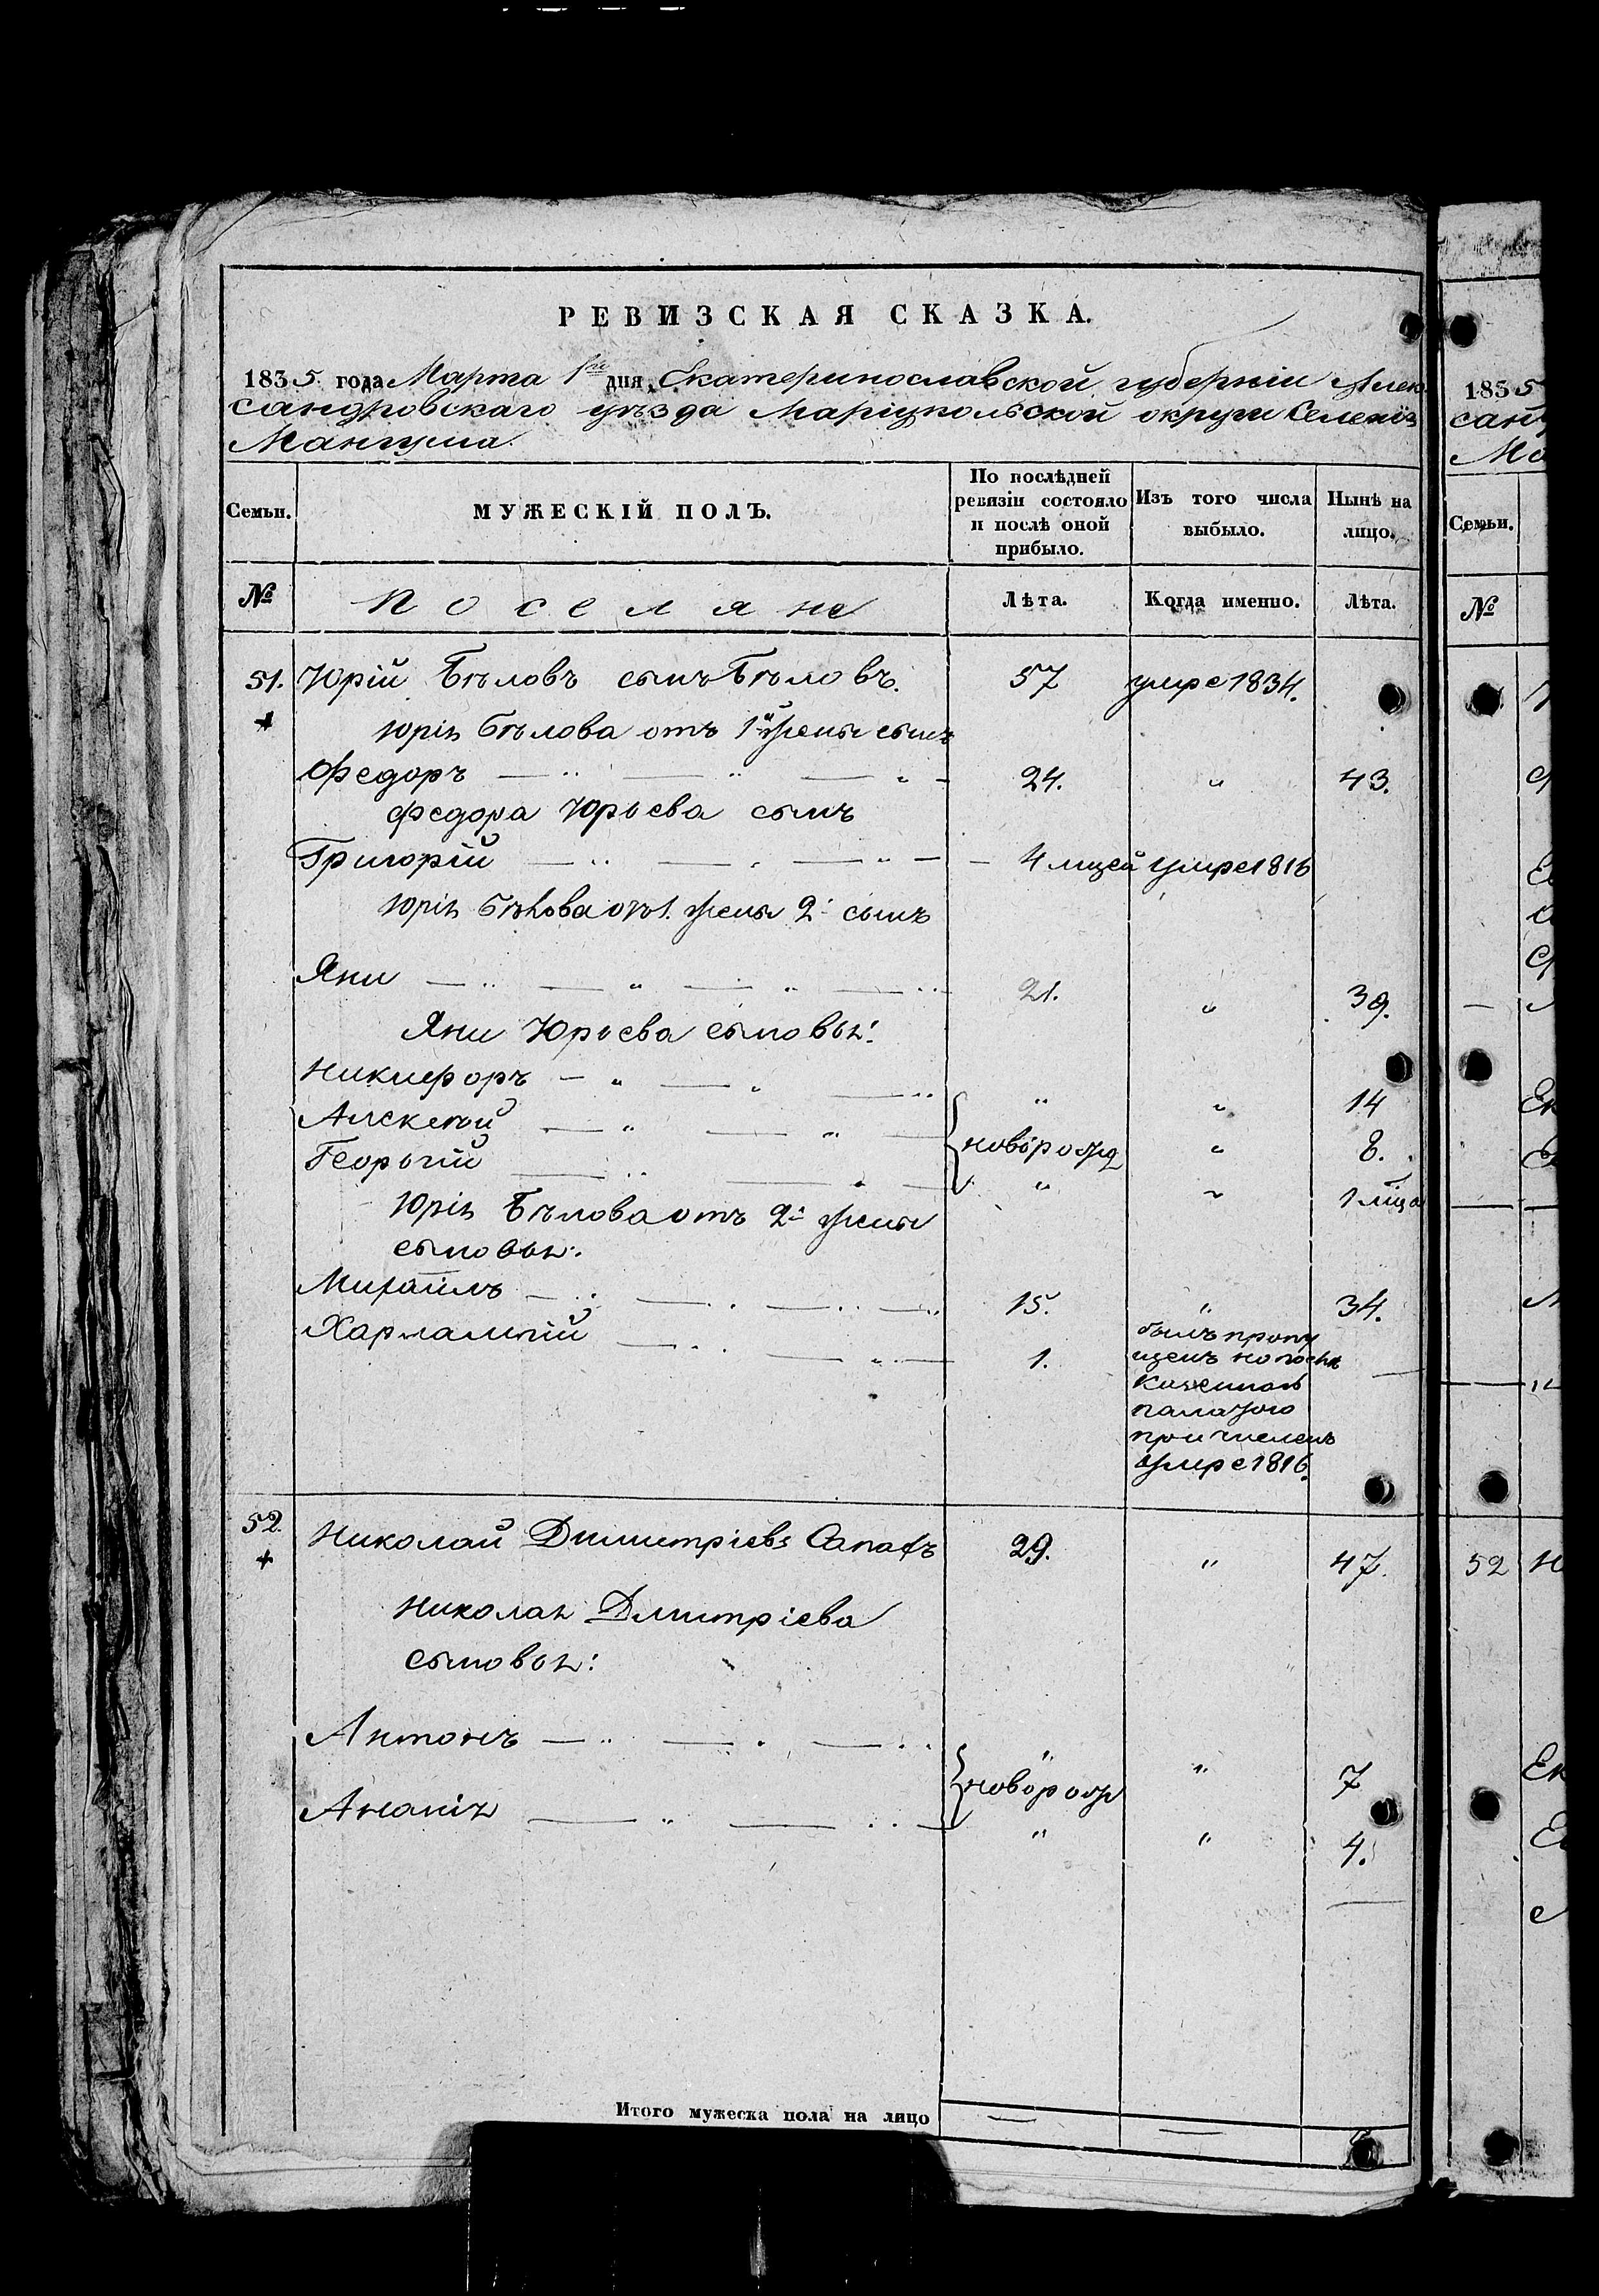 РЕВИЗСКАЯ СКАЗКА.
1835 года Марта 1го дня, Екатеринославской губерніи Алек
сандровскаго уѣзда Маріупольской округи Селенія
Мангуша
Семьи.
МУЖЕСКІЙ ПОЛЪ.
По послѣдней
ревизіи состояло
и послѣ оной
прибыло.
Изъ того числа
выбыло.
Нынѣ на
лицо.
№ Поселяне Лѣта. Когда именно. Лѣта.
51. Юрій Бѣловъ сынъ Бѣловъ. 57 умре 1834.
Юрія Бѣлова отъ 1й жены сынъ
Федоръ — " — " — " - 24. " 43.
Федора Юрьева сынъ
Григорій — " — " — " — 4 мцей умре 1816
Юрія Бѣлова от 1. жены 2й сынъ
Яни — " — " — " — " 21. " 39.
Яни Юрьева сыновья:
Никифоръ — " — " — " " " 14
Алексѣй — " — " — новорожд " 8.
Георьгій — " — " — " " 1 мца
Юрія Бѣлова отъ 2й жены
сыновья:
Михаилъ — " — " — " — " 15. " 34.
Харлампій — " — " — 1. былъ пропу
щенъ но послѣ
Казенною
палатою
причисленъ
умре 1816.
52. Николай Димитріевъ 29. " 47.
Николая Дмитріева
сыновья:
Антонъ — " — " — " " " 7
новорож
Ананія — " — " — " " 4.
Итого мужеска пола на лицо — —
1835
санд
Ма
Семьи.
№
52 Н